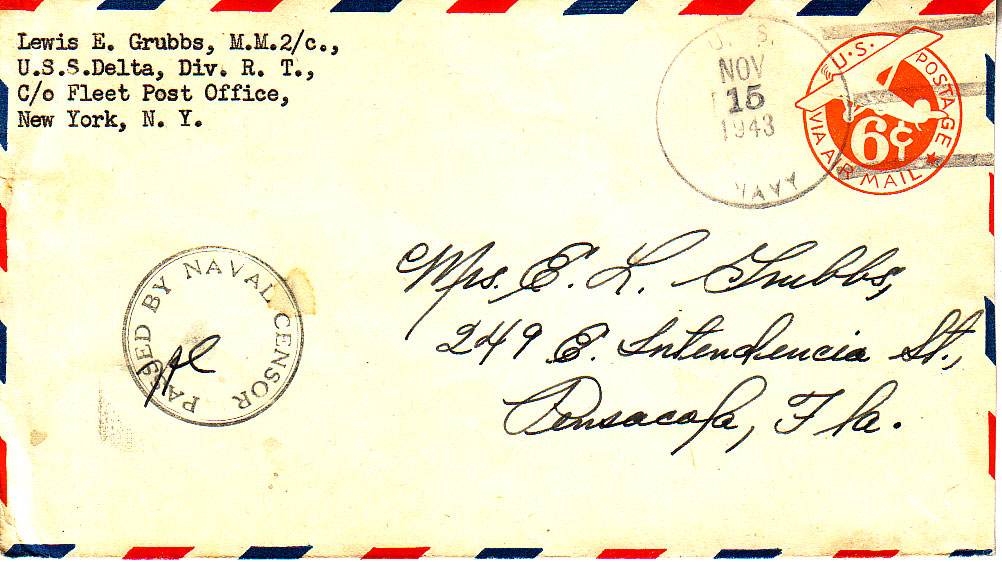 Lewis E. Grubbs, M.M.2/c.,
U.S.S.Delta, Div. R. T.,
C/o Fleet Post Office,
New York, N. Y.
U. S.
NOV
15
1943
NAVY
U.S. POSTAGE
6¢
VIA AIR MAIL
PASSED BY NAVAL CENSOR
Mrs. E. L. Grubbs,
249 E. Intendencia St.,
Pensacola, Fla.